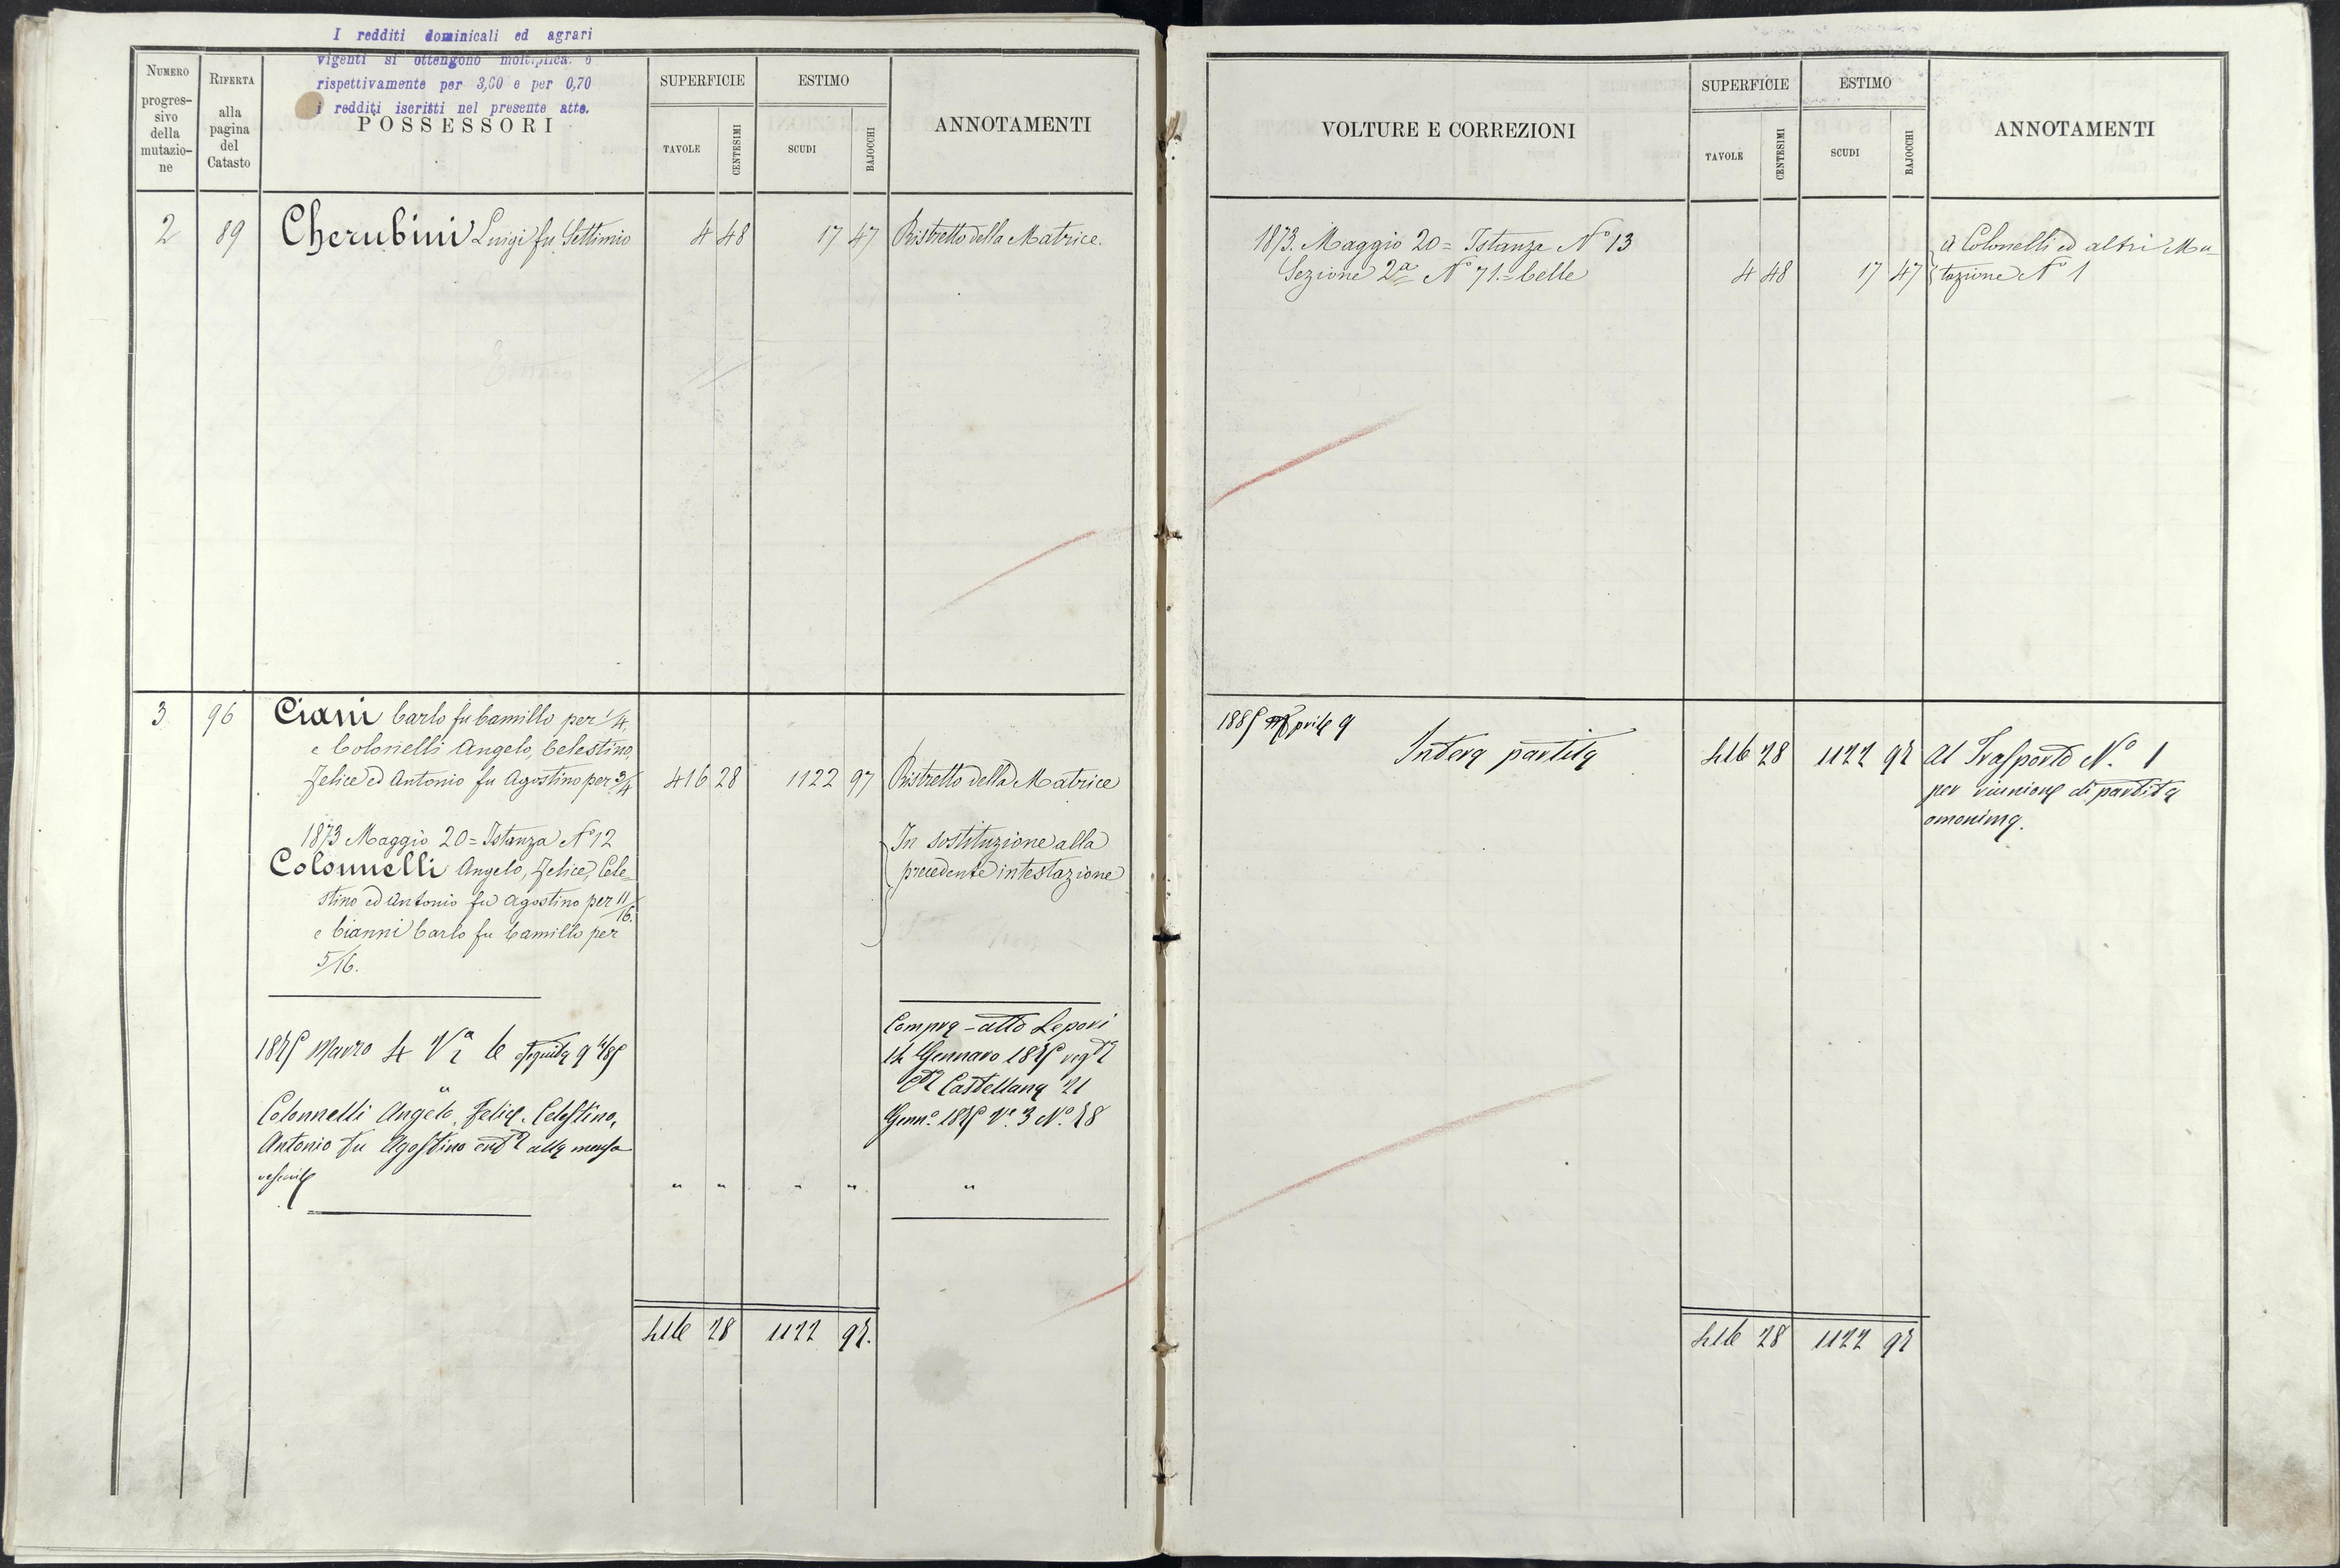 I redditi dominicali ed agrari
vigenti si ottengono moltiplica. o
rispettivamente per 3,60 e per 0,70
i redditi iscritti nel presente atto.
NUMERO
progres-
sivo
della
mutazio-
ne
RIFERTA
alla
pagina
del
Catasto
POSSESSORI
SUPERFICIE
TAVOLE
CENTESIMI
ESTIMO
SCUDI
BAJOCCHI
ANNOTAMENTI
2 89 Cherubini Luigi fu Settimio 4 48 17 47 Ristretto della Matrice.
3 96 Ciani Carlo fu Camillo per 1/4,
e Colonelli Angelo, Celestino,
Felice ed Antonio fu Agostino per 3/4 416 28 1122 97 Ristretto della Matrice
1873 Maggio 20 = Istanza N° 12
Colonnelli Angelo, Felice, Cele-
stino ed Antonio fu Agostino per 11/16.
e Cianni Carlo fu Camillo per
5/16.
In sostituzione alla
precedente intestazione
Marzo 4
Colonnelli Angelo, Felice, Celestino,
Antonio fu Agostino alla mensa
vescovile
Compra - atto Lepori
Gennaro
Castellana 21
Genn° N° 3 N°
" " " " "
416 28 1122 97.
VOLTURE E CORREZIONI
SUPERFICIE
TAVOLE
CENTESIMI
ESTIMO
SCUDI
BAJOCCHI
ANNOTAMENTI
1873. Maggio 20 = Istanza N° 13
Sezione 2a N° 71. = Celle 4 48 17 47
A Colonelli ed altri Mu-
tazione N° 1
1885 Aprile 9
Intera partita 416 28 1122 97 Al Trasporto N° 1
per riunione di partita
omonima.
416 28 1122 97